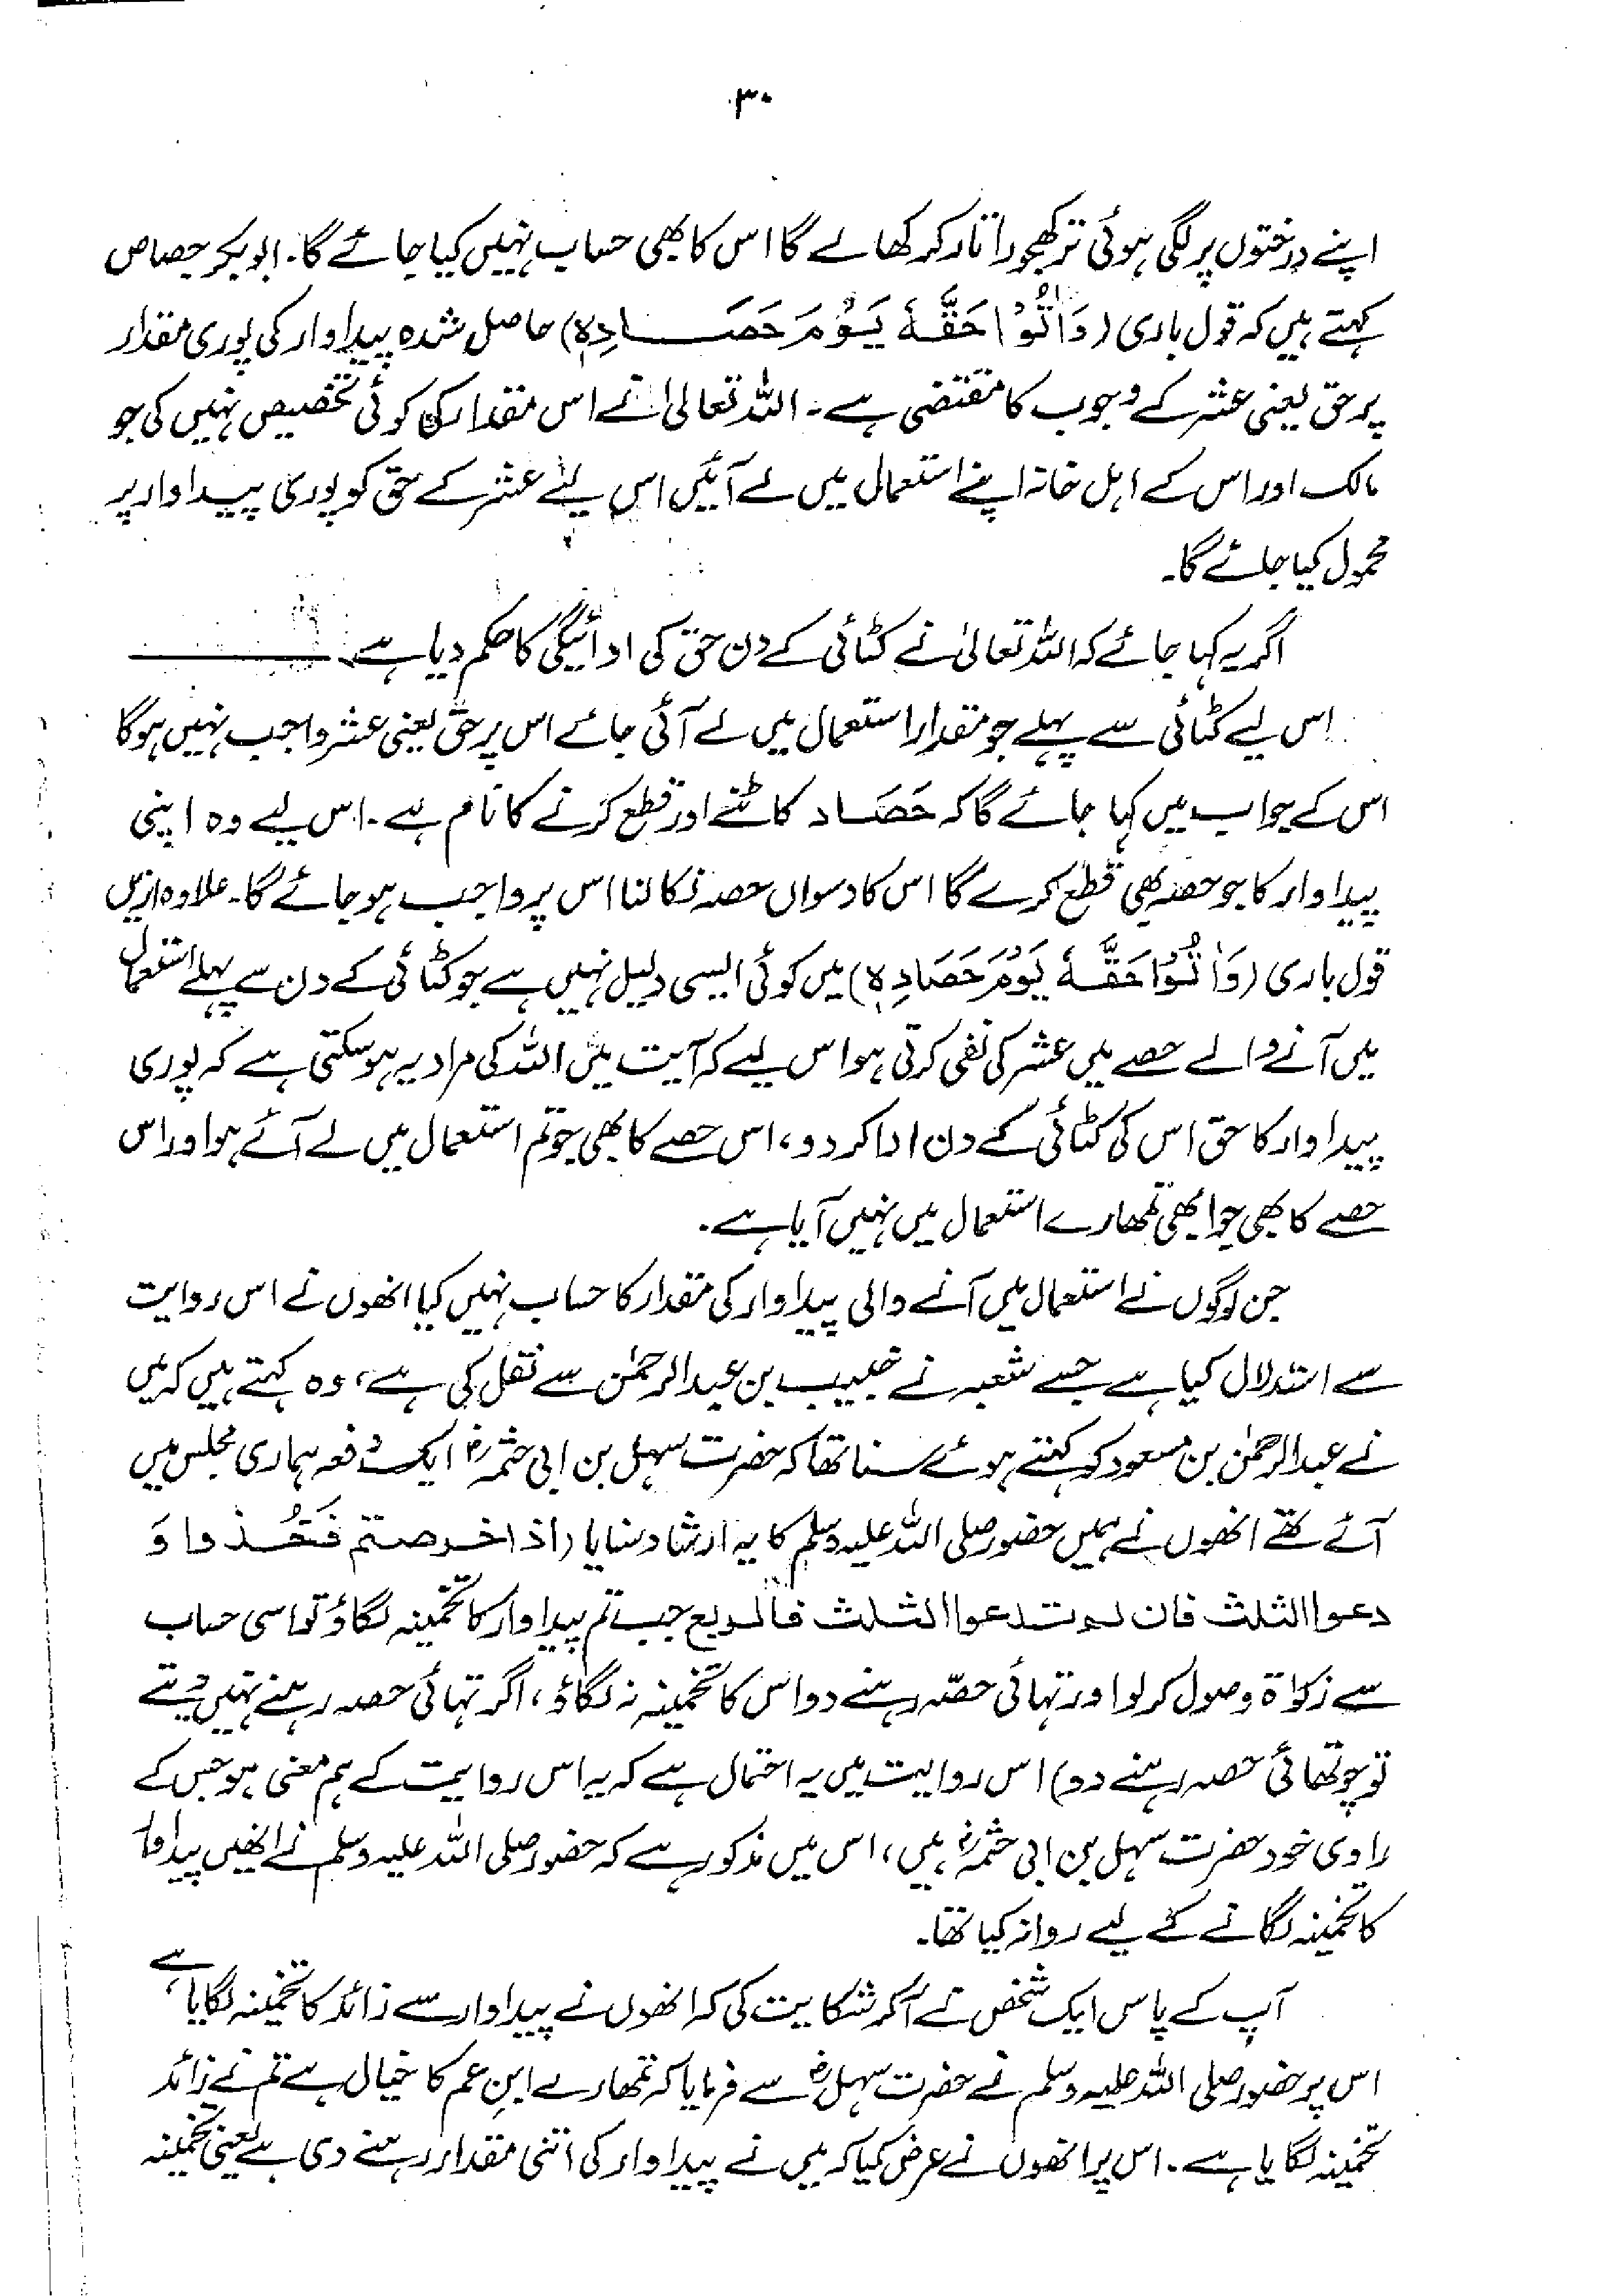 ۳۰
اپنے درختوں پر لگی ہوئی تر کھجور اتار کر کھالے گا اس کا بھی حساب نہیں کیا جائے گا۔ ابوبکر جصاص
کہتے ہیں کہ قول باری (وَاٰتُوْا حَقَّهٗ يَوْمَ حَصَادِهٖ) حاصل شدہ پیداوار کی پوری مقدار
پر حق یعنی عشر کے وجوب کا مقتضی ہے۔ اللہ تعالیٰ نے اس مقدار کی کوئی تخصیص نہیں کی جو
مالک اور اس کے اہل خانہ اپنے استعمال میں لے آئیں اس لئے عشر کے حق کو پوری پیداوار پر
محمول کیا جائے گا۔
اگر یہ کہا جائے کہ اللہ تعالیٰ نے کٹائی کے دن حق کی ادائیگی کا حکم دیا ہے۔
اس لیے کٹائی سے پہلے جو مقدار استعمال میں لے آئی جائے اس پر حق یعنی عشر واجب نہیں ہوگا
اس کے جواب میں کہا جائے گا کہ حَصَاد کاٹنے اور قطع کرنے کا نام ہے۔ اس لیے وہ اپنی
پیداوار کا جو حصہ بھی قطع کرے گا اس کا دسواں حصہ نکالنا اس پر واجب ہو جائے گا۔ علاوہ ازیں
قول باری (وَاٰتُوْا حَقَّهٗ يَوْمَ حَصَادِهٖ) میں کوئی ایسی دلیل نہیں ہے جو کٹائی کے دن سے پہلے استعمال
میں آنے والے حصے میں عشر کی نفی کرتی ہو اس لیے کہ آیت میں اللہ کی مراد یہ ہو سکتی ہے کہ پوری
پیداوار کا حق اس کی کٹائی کے دن ادا کر دو، اس حصے کا بھی جو تم استعمال میں لے آئے ہو اور اس
حصے کا بھی جو ابھی تمھارے استعمال میں نہیں آیا ہے۔
جن لوگوں نے استعمال میں آنے والی پیداوار کی مقدار کا حساب نہیں کیا انھوں نے اس روایت
سے استدلال کیا ہے جسے شعبہ نے خبیب بن عبدالرحمٰن سے نقل کی ہے، وہ کہتے ہیں کہ میں
نے عبدالرحمٰن بن مسعود کو کہتے ہوئے سنا تھا کہ حضرت سہل بن ابی حثمہؓ ایک دفعہ ہماری مجلس میں
آئے تھے انھوں نے ہمیں حضور صلی اللہ علیہ وسلم کا یہ ارشاد سنایا (اذا خرصتم فَخُذوا وَ
دعوا الثلث فان لم تدعوا الثلث فالربع جب تم پیداوار کا تخمینہ لگاؤ تو اسی حساب
سے زکوٰۃ وصول کر لو اور تہائی حصّہ رہنے دو اس کا تخمینہ نہ لگاؤ، اگر تہائی حصہ رہنے نہیں دیتے
تو چوتھائی حصہ رہنے دو) اس روایت میں یہ احتمال ہے کہ یہ اس روایت کے ہم معنی ہو جس کے
راوی خود حضرت سہل بن ابی حثمہؓ ہیں، اس میں مذکور ہے کہ حضور صلی اللہ علیہ وسلم نے انھیں پیداوار
کا تخمینہ لگانے کے لیے روانہ کیا تھا۔
آپ کے پاس ایک شخص نے آکر شکایت کی کہ انھوں نے پیداوار سے زائد کا تخمینہ لگایا ہے،
اس پر حضور صلی اللہ علیہ وسلم نے حضرت سہلؓ سے فرمایا کہ تمھارے ابنِ عم کا خیال ہے تم نے زائد
تخمینہ لگایا ہے۔ اس پر انھوں نے عرض کیا کہ میں نے پیداوار کی اتنی مقدار رہنے دی ہے یعنی تخمینہ